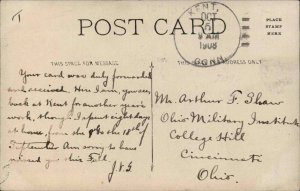 POST CARD
KENT,
OCT
6
9 AM
1908
CONN.
PLACE
STAMP
HERE
THIS SPACE FOR MESSAGE
Your card was duly forwarded
and received. Here I am, you see,
back at Kent for another year's
work, though I spent eight days
at home, from the 8th to 18th of
September. Am sorry to have
missed you this Fall.
J.V.S.
Mr. Arthur F. Shaw
Ohio Military Institute
College Hill
Cincinnati
Ohio.